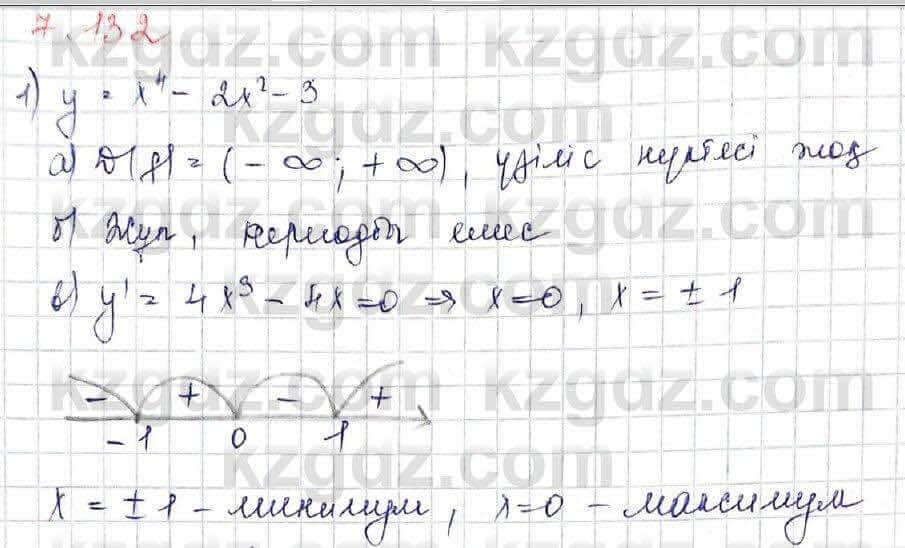 7.132
1) y = x⁴ - 2x² - 3
а) D(f) = (-∞; +∞), үзіліс нүктесі жоқ
б) Жұп, периодты емес
в) y' = 4x³ - 4x = 0 ⇒ x = 0, x = ± 1
- + - +
-1 0 1
x = ± 1 - минимум, x = 0 - максимум
kzgdz.com kzgdz.com
kzgdz.com
kzgdz.com kzgdz.com
kzgdz.com
kzgdz.com kzgdz.com
kzgdz.com